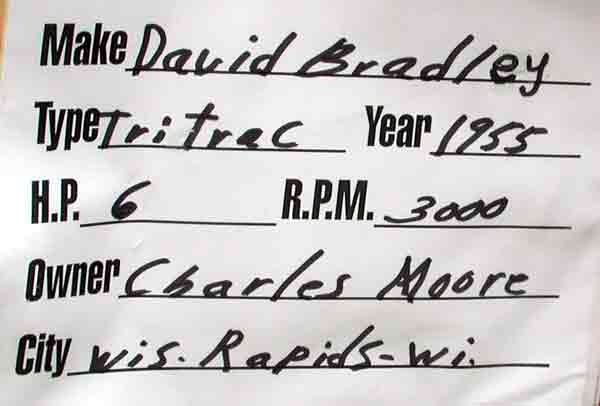 Make David Bradley
Type Tritrac Year 1955
H.P. 6 R.P.M. 3000
Owner Charles Moore
City Wis. Rapids-Wi.